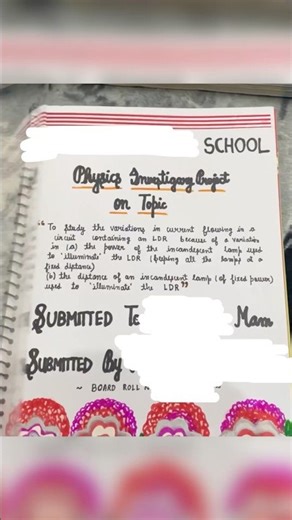 SCHOOL
Physics Investigary Project
on Topic
"To Study the variations in current flowing in a
circuit containing an LDR because of a variation
in (a) the power of the incandescent lamp used
to 'illuminate' the LDR (keeping all the lamps at a
fixed distance)
(b) the distance of an incandescent lamp (of fixed power)
used to 'illuminate' the LDR"
SUBMITTED To Mam
SUBMITTED By
~ BOARD ROLL